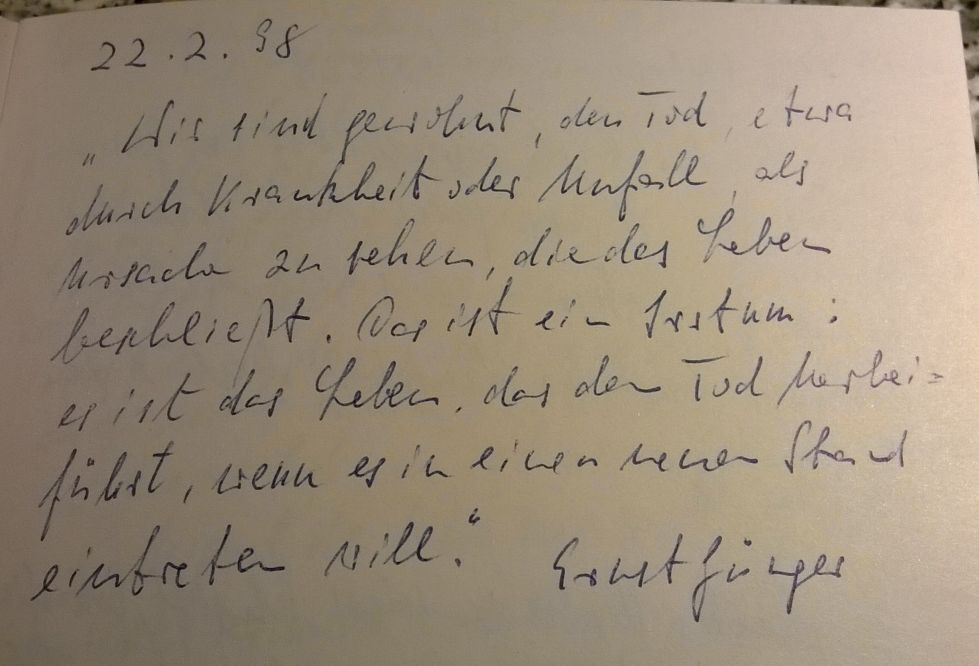 22.2.98
„Wir sind gewohnt, den Tod, etwa
durch Krankheit oder Unfall, als
Ursache zu sehen, die das Leben
beschließt. Das ist ein Irrtum:
es ist das Leben, das den Tod herbei=
führt, wenn es in einen neuen Stand
eintreten will.“ Ernst Jünger